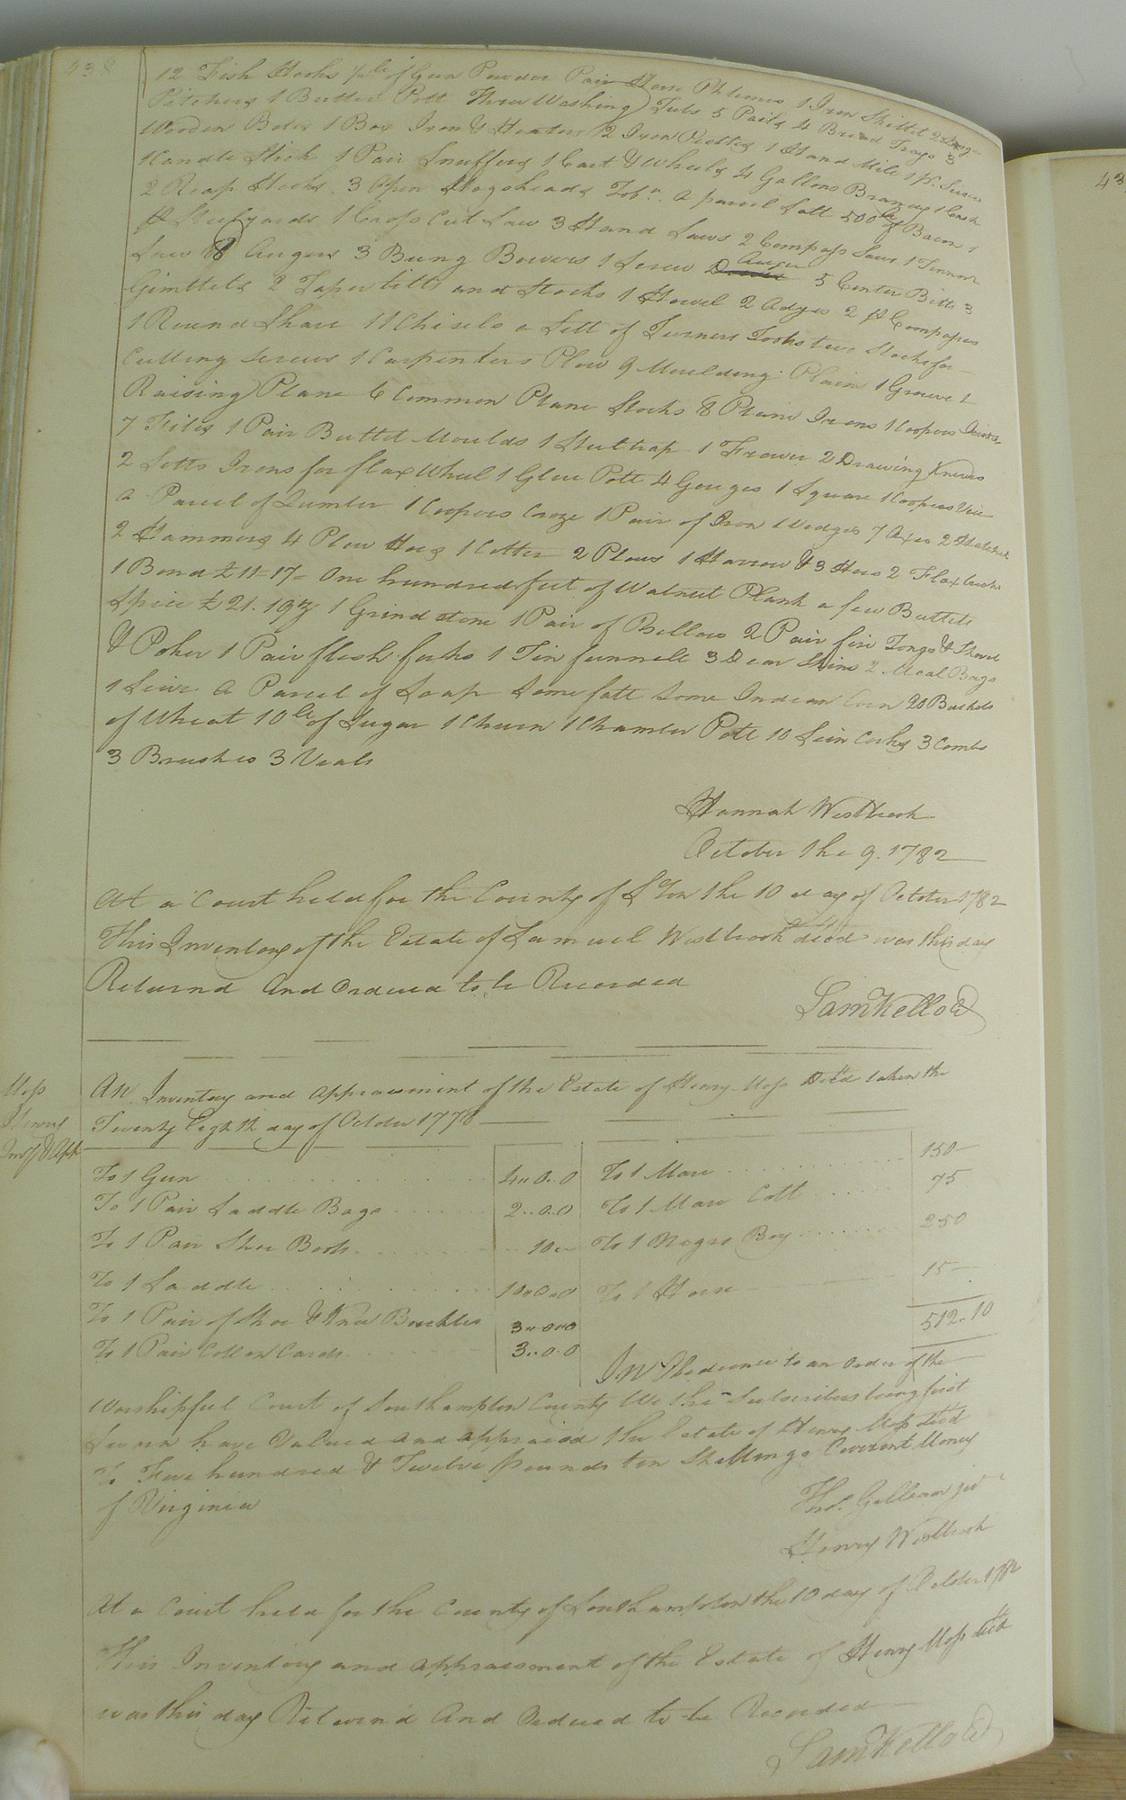 438
12 Fish Hooks 1/2 lb of Gun Powder Pair Horse Phlemes 1 Iron Skillet 2
Pitchers 1 Butter Pott Three Washing Tubs 5 Pails 4 Bread Trays 3
Wooden Boles 1 Box Iron & Heaters 2 Iron Pestles 1 Hand Mill 1 Pr.
1 Candle Stick 1 Pair Snuffers 1 Cart & Wheels 4 Gallons Brandy 1 Cask
2 Reap Hooks 3 Open Hogsheads Tobo. A parcel Salt 500 lb of Bacon 1
Pr Steelyards 1 Cross Cut Saw 3 Hand Saws 2 Compass Saws 1 Tennon
Saw 8 Augers 3 Bung Borers 1 Screw Auger 5 Center Bitts 3
Gimblets 2 Taper bitts and Stocks 1 Howel 2 Adzes 2 pr Compases
1 Round Shave 11 Chisels a Sett of Turners Tools two Stocks for
Cutting Screws 1 Carpenters Plow 9 Moulding Plains 1 Groove &
Raising Plane 6 Common Plane Stocks 8 Plane Irons 1 Coopers
7 Files 1 Pair Bullet Moulds 1 Steel trap 1 Frower 2 Drawing Knives
2 Setts Irons for flax Wheel 1 Glue Pott 4 Gouges 1 Square 1 Coopers Vice
a Parcel of Lumber 1 Coopers Croze 1 Pair of Iron Wedges 7 Axes 2
2 Hammers 4 Plow Hoes 1 Colter 2 Plows 1 Harrow & 3 Hoes 2 Flax
1 Bond £11-17- One hundred feet of Walnut Plank a few Bottles
Spice £21.19.3 1 Grind stone 1 Pair of Bellows 2 Pair fire Tongs & Shovel
& Poker 1 Pair flesh forks 1 Tin funnell 3 Dear Skins 2 Meal Bags
1 Sive A Parcel of Soap Some fatt Some Indian Corn 20 Bushels
of Wheat 10 lb of Sugar 1 Churn 1 Chamber Pott 10 3 Combs
3 Brushes 3 Veals
Hannah Westbrook
October the 9. 1782
At a Court held for the County of S.Ton the 10 day of October 1782
This Inventory of the Estate of Samuel Westbrook decd was this day
Returnd and Ordered to be Recorded
Sam Kello Cl
Moss
Henry
Invy & Appt
An Inventory and appraisment of the Estate of Henry Moss Decd taken the
Twenty Eighth day of October 1778
To 1 Gun 4..0.0 To 1 Mare 150-
To 1 Pair Saddle Bags 2..0.0 To 1 Mare Colt 75
To 1 Pair Shoe Boots 10- To 1 Negro Boy 250
To 1 Saddle 10..0.0 To 1 Horse 15-
To 1 Pair of Shoe & Knee Buckles 3..0.0 512.10
To 1 Pair Cotton Cards 3..0.0
In Obedience to an order of the
Worshipful Court of Southampton County We the Subscribers being first
Sworn have Valued and appraisd the Estate of Henry Moss decd
To Five hundred & Twelve pounds ten Shillings Current Money
of Virginia
Thos. Gilliam junr
Henry Westbrook
At a Court held for the County of Southampton the 10 day of October 1782
This Inventory and appraisement of the Estate of Henry Moss decd
was this day Returnd And Ordered to be Recorded
Sam Kello Cl
43